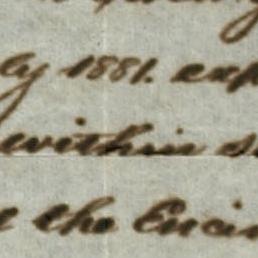 ly 1881. exp
within s
the Encin